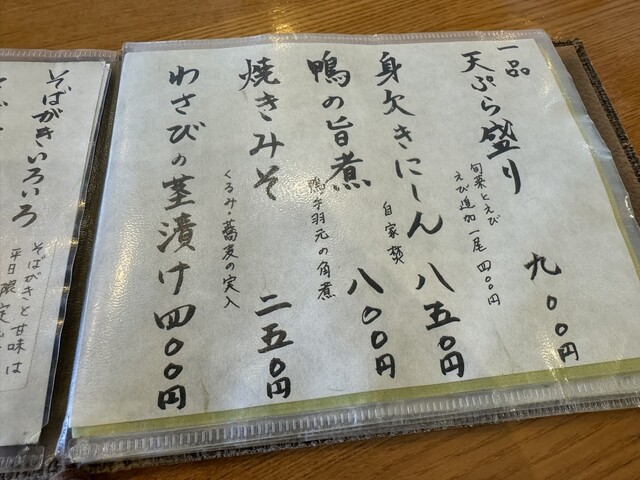 一品
天ぷら盛り 九〇〇円
旬菜とえび
えび追加一尾 四〇〇円
身欠きにしん 八五〇円
自家焚
鴨の旨煮 八〇〇円
鴨手羽元の角煮
焼きみそ 二五〇円
くるみ・蕎麦の実入
わさびの茎漬け 四〇〇円
そばがきいろいろ
そばがきと甘味は
平日限定